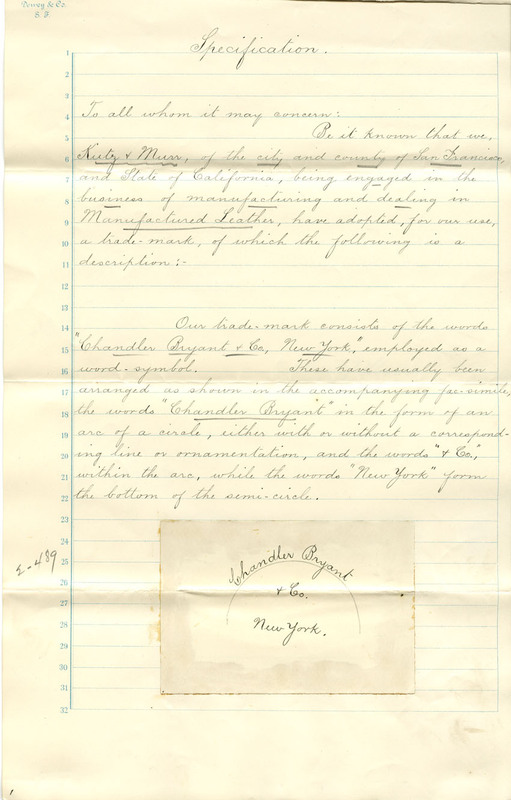 Dewey & Co.
S. F.
Specification.
1
2
3
4
To all whom it may concern:
5
Be it known that we,
6
Kutz & Murr, of the city and county of San Francisco,
7
and State of California, being engaged in the
8
business of manufacturing and dealing in
9
Manufactured Leather, have adopted, for our use,
10
a trade-mark, of which the following is a
11
description:-
12
13
14
Our trade-mark consists of the words
15
"Chandler Bryant & Co., New York," employed as a
16
word-symbol. These have usually been
17
arranged as shown in the accompanying fac-simile,
18
the words "Chandler Bryant" in the form of an
19
arc of a circle, either with or without a correspond-
20
ing line or ornamentation, and the words "& Co.",
21
within the arc, while the words "New York" form
22
the bottom of the semi-circle.
23
24
25
26
27
28
29
30
31
32
2-489
Chandler Bryant
& Co.
New York.